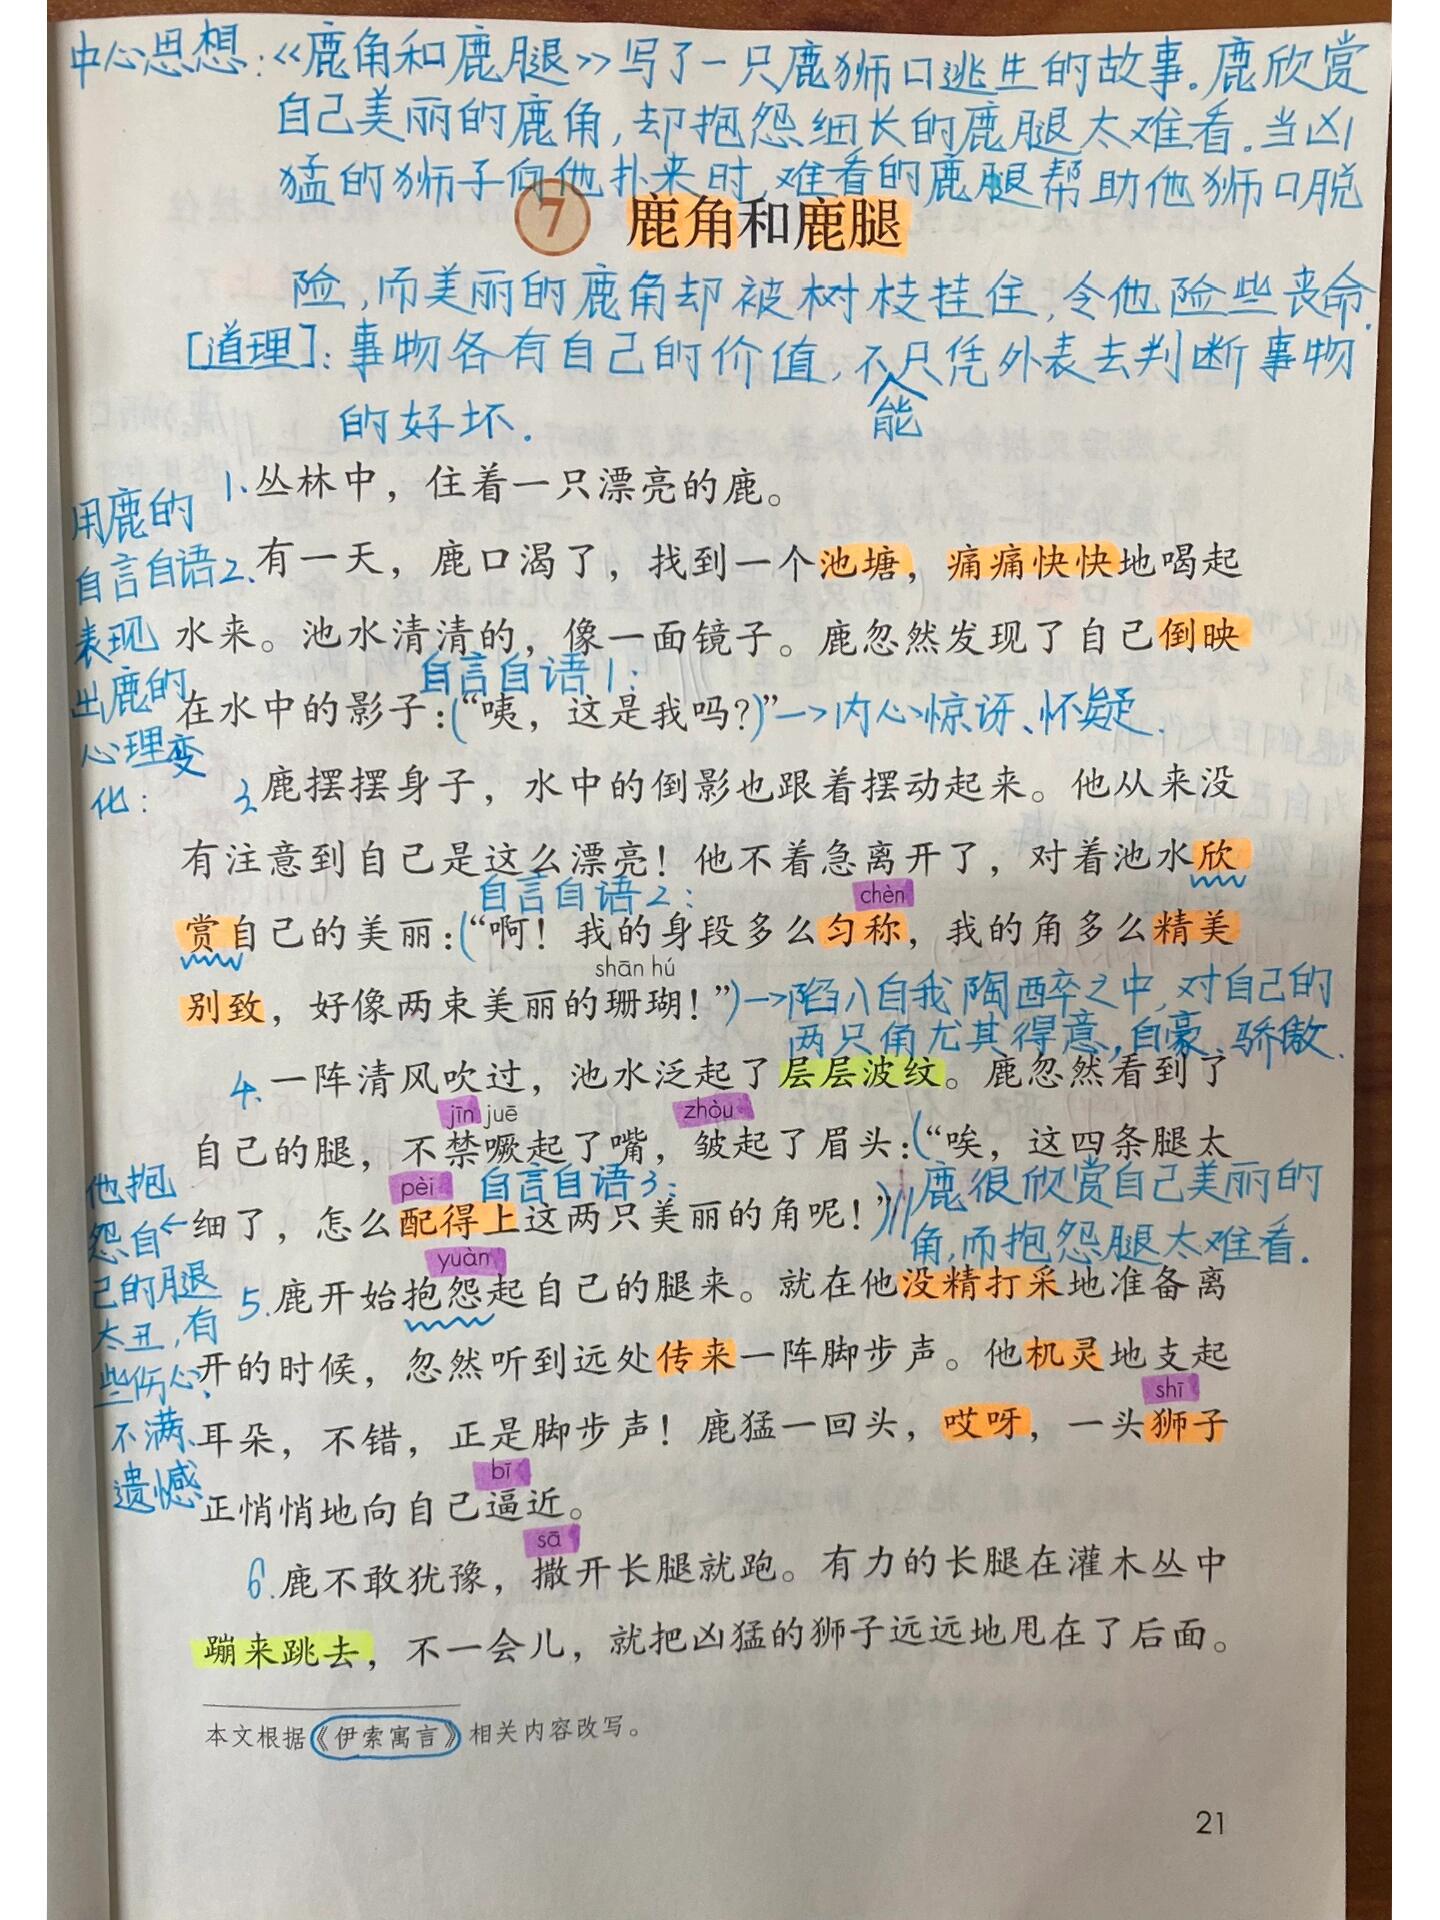 中心思想:《鹿角和鹿腿》写了一只鹿狮口逃生的故事。鹿欣赏
自己美丽的鹿角,却抱怨细长的鹿腿太难看。当凶
猛的狮子向他扑来时,难看的鹿腿帮助他狮口脱
7 鹿角和鹿腿
险,而美丽的鹿角却被树枝挂住,令他险些丧命.
[道理]:事物各有自己的价值,不只凭外表去判断事物
能
的好坏.
1.丛林中，住着一只漂亮的鹿。
用鹿的
自言自语
表现
出鹿的
心理变
化:
2.有一天，鹿口渴了，找到一个池塘，痛痛快快地喝起
水来。池水清清的，像一面镜子。鹿忽然发现了自己倒映
自言自语1:
在水中的影子:(“咦，这是我吗?)”→内心惊讶、怀疑.
3.鹿摆摆身子，水中的倒影也跟着摆动起来。他从来没
有注意到自己是这么漂亮！他不着急离开了，对着池水欣
自言自语2: chèn
赏自己的美丽:(“啊！我的身段多么匀称，我的角多么精美
shān hú
别致，好像两束美丽的珊瑚！”)→陷入自我陶醉之中,对自己的
两只角尤其得意,自豪、骄傲.
4.一阵清风吹过，池水泛起了层层波纹。鹿忽然看到了
jīn juē zhòu
自己的腿，不禁噘起了嘴，皱起了眉头:(“唉，这四条腿太
pèi 自言自语3:
细了，怎么配得上这两只美丽的角呢！”)
鹿很欣赏自己美丽的
角,而抱怨腿太难看.
他抱
怨自←
己的腿
太丑,有
些伤心、
不满、
遗憾
yuàn
5.鹿开始抱怨起自己的腿来。就在他没精打采地准备离
开的时候，忽然听到远处传来一阵脚步声。他机灵地支起
shī
耳朵，不错，正是脚步声！鹿猛一回头，哎呀，一头狮子
bī
正悄悄地向自己逼近。
sā
6.鹿不敢犹豫，撒开长腿就跑。有力的长腿在灌木丛中
蹦来跳去，不一会儿，就把凶猛的狮子远远地甩在了后面。
本文根据《伊索寓言》相关内容改写。
21